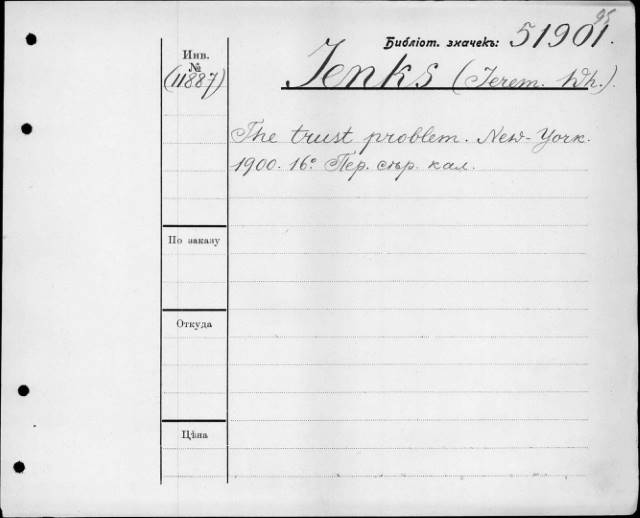 95
Библіот. значекъ: 51901.
Инв.
№
(11887)
Jenks (Jerem. Wh.).
The trust problem. New-York.
1900. 16º. Пер. сѣр. кал.
По заказу
Откуда
Цѣна